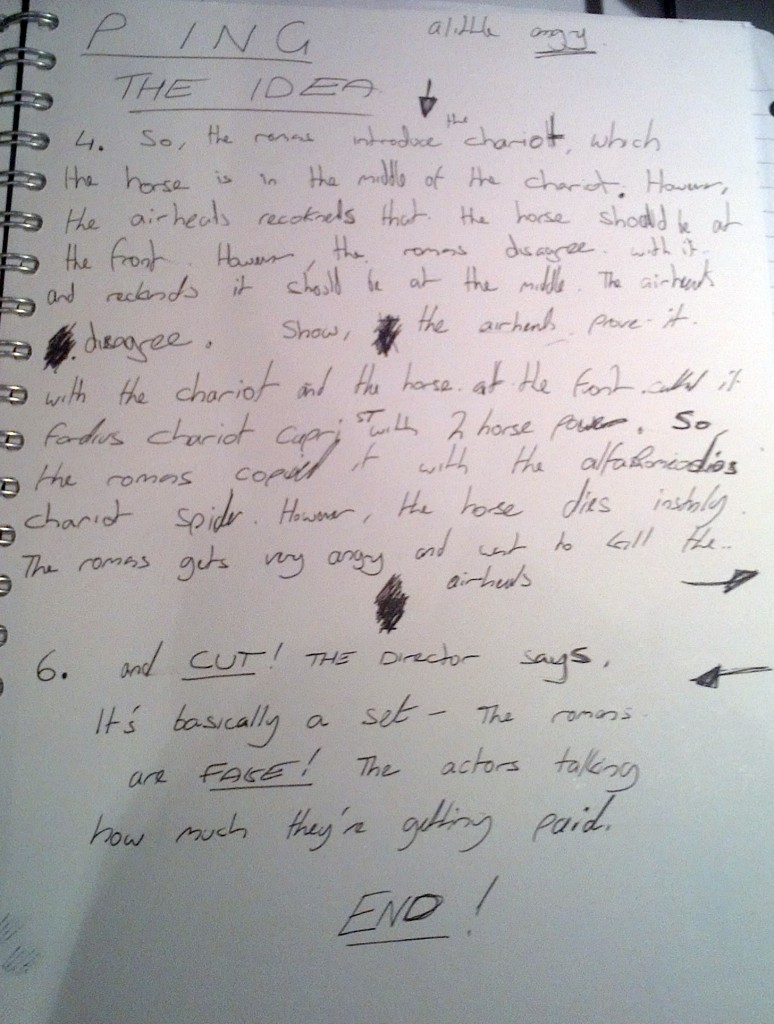 P ING
a little angy
THE IDEA
4. So, the romans introduce the chariot, which
the horse is in the middle of the chariot. However,
the airheads recokneds that the horse should be at
the front. However, the romans disagree with it.
and reckends it should be at the middle. The airheads
disagree. Show, the airheads prove it.
with the chariot and the horse at the front called it
fordius chariot capri ST with 2 horse power. So,
the romans copied it with the alfaRomeodios
chariot spider. However, the horse dies instantly.
The romans gets very angy and want to kill the
airheads
6. and CUT! THE Director says.
It's basically a set - The romans
are FAKE! The actors talking
how much they're getting paid.
END!